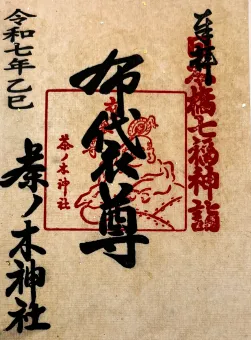 奉拝
日本橋七福神詣
布袋尊
茶ノ木神社
令和七年乙巳
茶ノ木神社